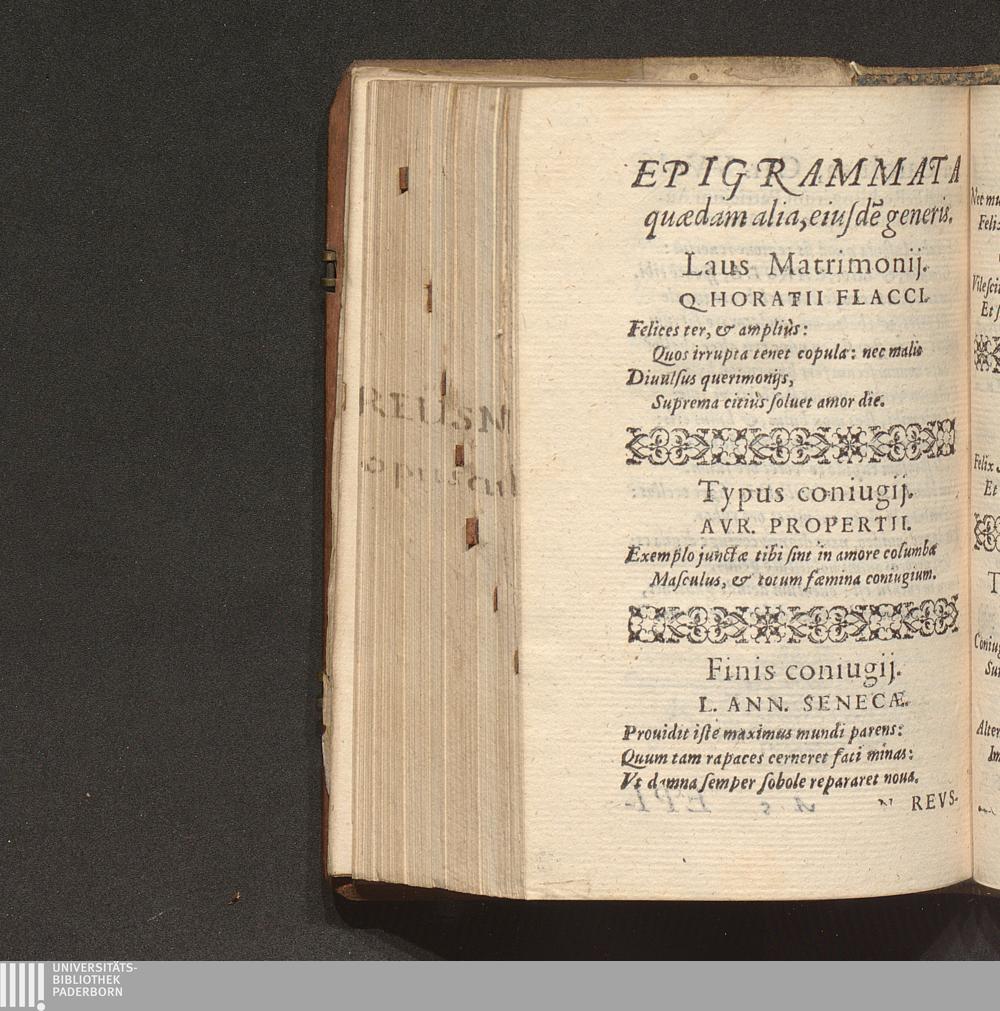 EPIGRAMMATA
quædam alia, eiuſdē generis.
Laus Matrimonij.
Q HORATII FLACCI.
Felices ter, & ampliùs:
Quos irrupta tenet copula: nec malis
Diuulſus querimonijs,
Suprema citiùs ſoluet amor die.
Typus coniugij.
AVR. PROPERTII.
Exemplo junctæ tibi ſint in amore columbæ
Maſculus, & totum fæmina coniugium.
Finis coniugij.
L. ANN. SENECÆ.
Prouidit iſte maximus mundi parens:
Quum tam rapaces cerneret fati minas:
Vt damna ſemper ſobole repararet noua.
REVS-
REUSN
opuscul
Et
Felix
Et
Alter
UNIVERSITÄTS-
BIBLIOTHEK
PADERBORN